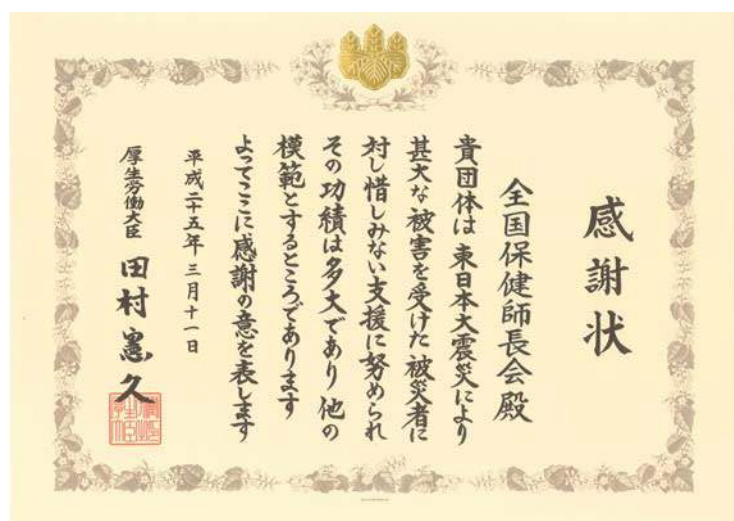 感謝状
全国保健師長会殿
貴団体は東日本大震災により
甚大な被害を受けた被災者に
対し惜しみない支援に努められ
その功績は多大であり他の
模範とするところであります
よってここに感謝の意を表します
平成二十五年三月十一日
厚生労働大臣 田村憲久